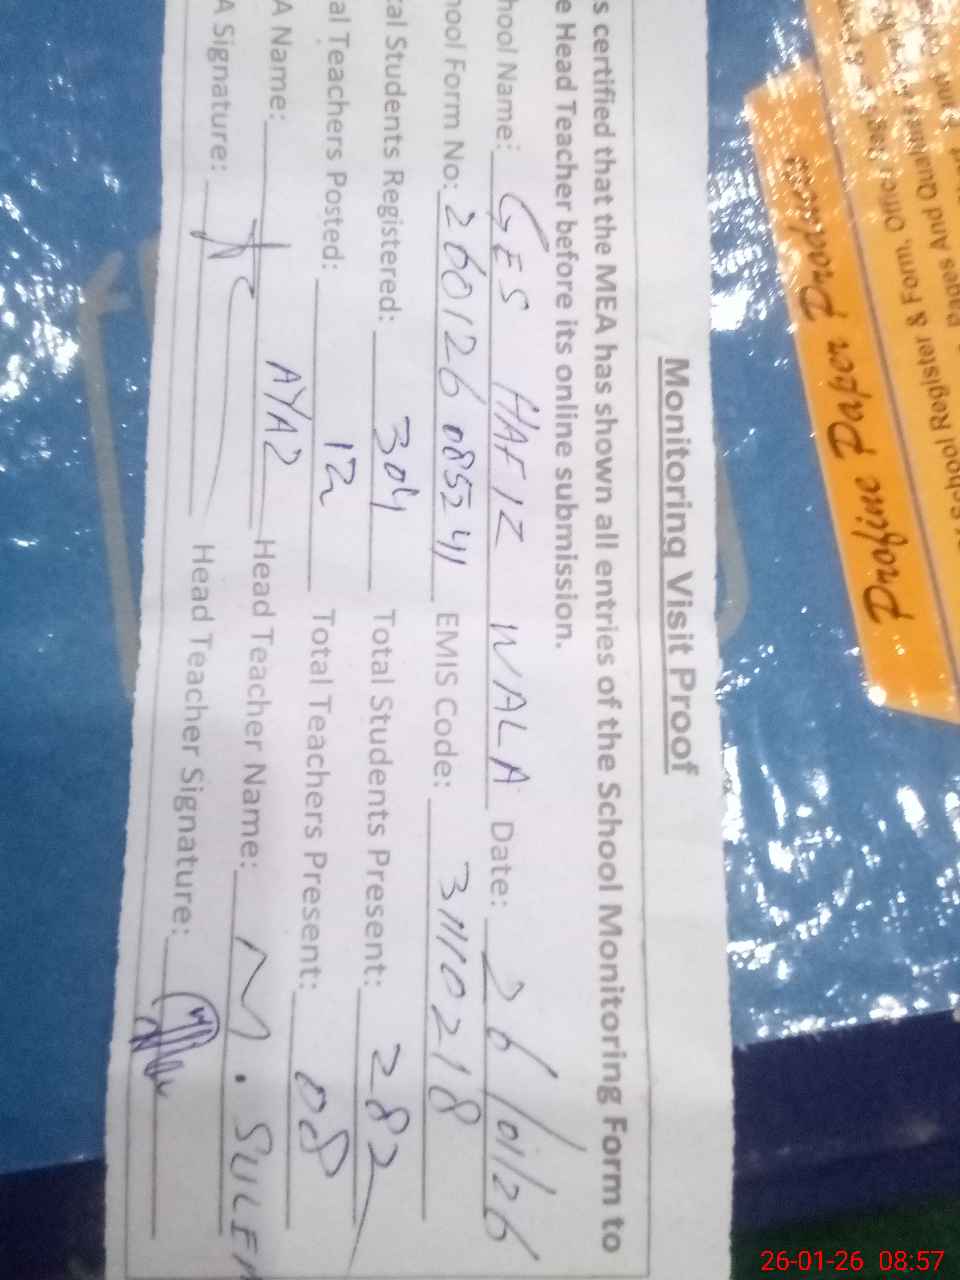 Monitoring Visit Proof
s certified that the MEA has shown all entries of the School Monitoring Form to
e Head Teacher before its online submission.
hool Name: GES HAFIZ WALA Date: 26/01/26
hool Form No: 260126 085241 EMIS Code: 31110218
al Students Registered: 304 Total Students Present: 282
al Teachers Posted: 12 Total Teachers Present: 08
A Name: AYAZ Head Teacher Name: M. SULEM
A Signature: Head Teacher Signature:
Pages And Quality
School Register & Form, Office
Prgfine Paper Products
26-01-26 08:57